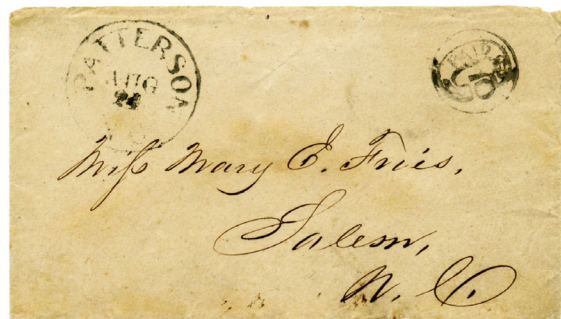 PATTERSON
AUG
24
PAID
Miss Mary E. Fries,
Salem,
N. C.